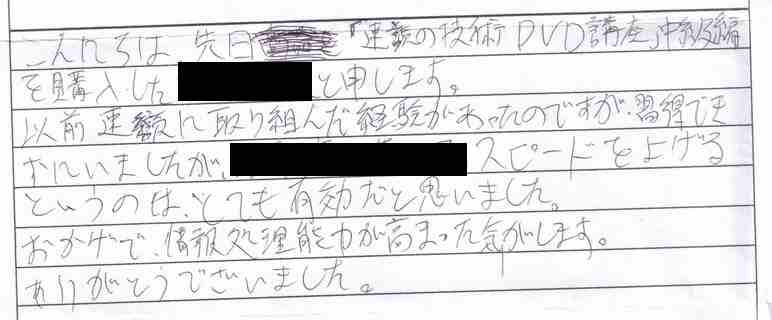 こんにちは 先日 「速読の技術 DVD講座」中級編
を購入した と申します。
以前 速読に取り組んだ経験があったのですが、習得でき
ずにいましたが、 スピードを上げる
というのは、とても有効だと思いました。
おかげで、情報処理能力が高まった気がします。
ありがとうございました。